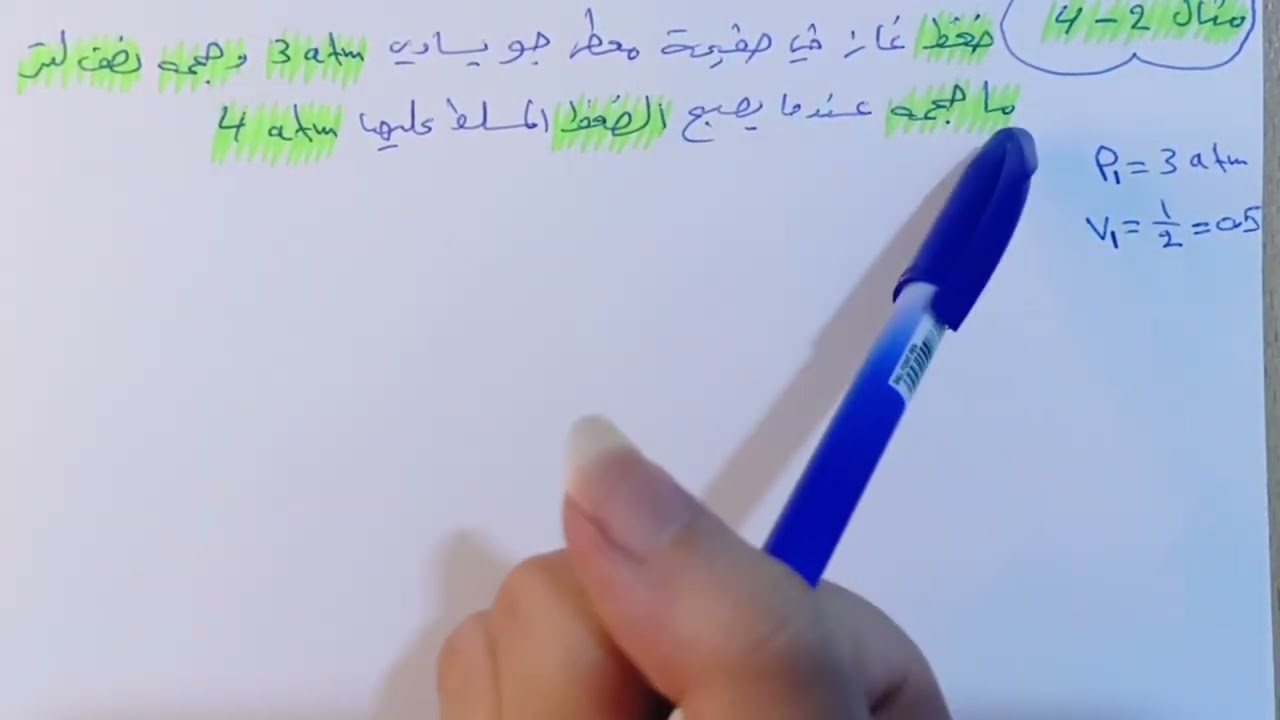 مثال 2 - 4
ضغط غاز في حقيبة معطر جو يساوي 3 atm وحجمه نصف لتر
ما حجمه عندما يصبح الضغط المسلط عليها 4 atm
P₁ = 3 atm
V₁ = 1/2 = 0.5